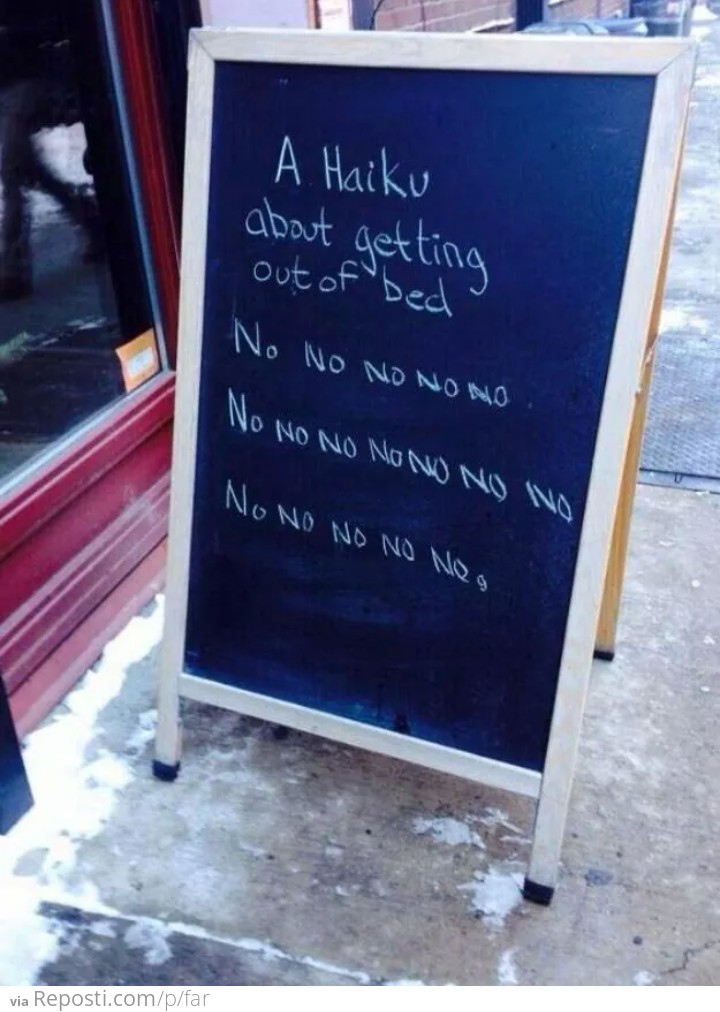 A Haiku
about getting
out of bed
No No No No No
No No No No No No No
No No No No No.
via Reposti.com/p/far